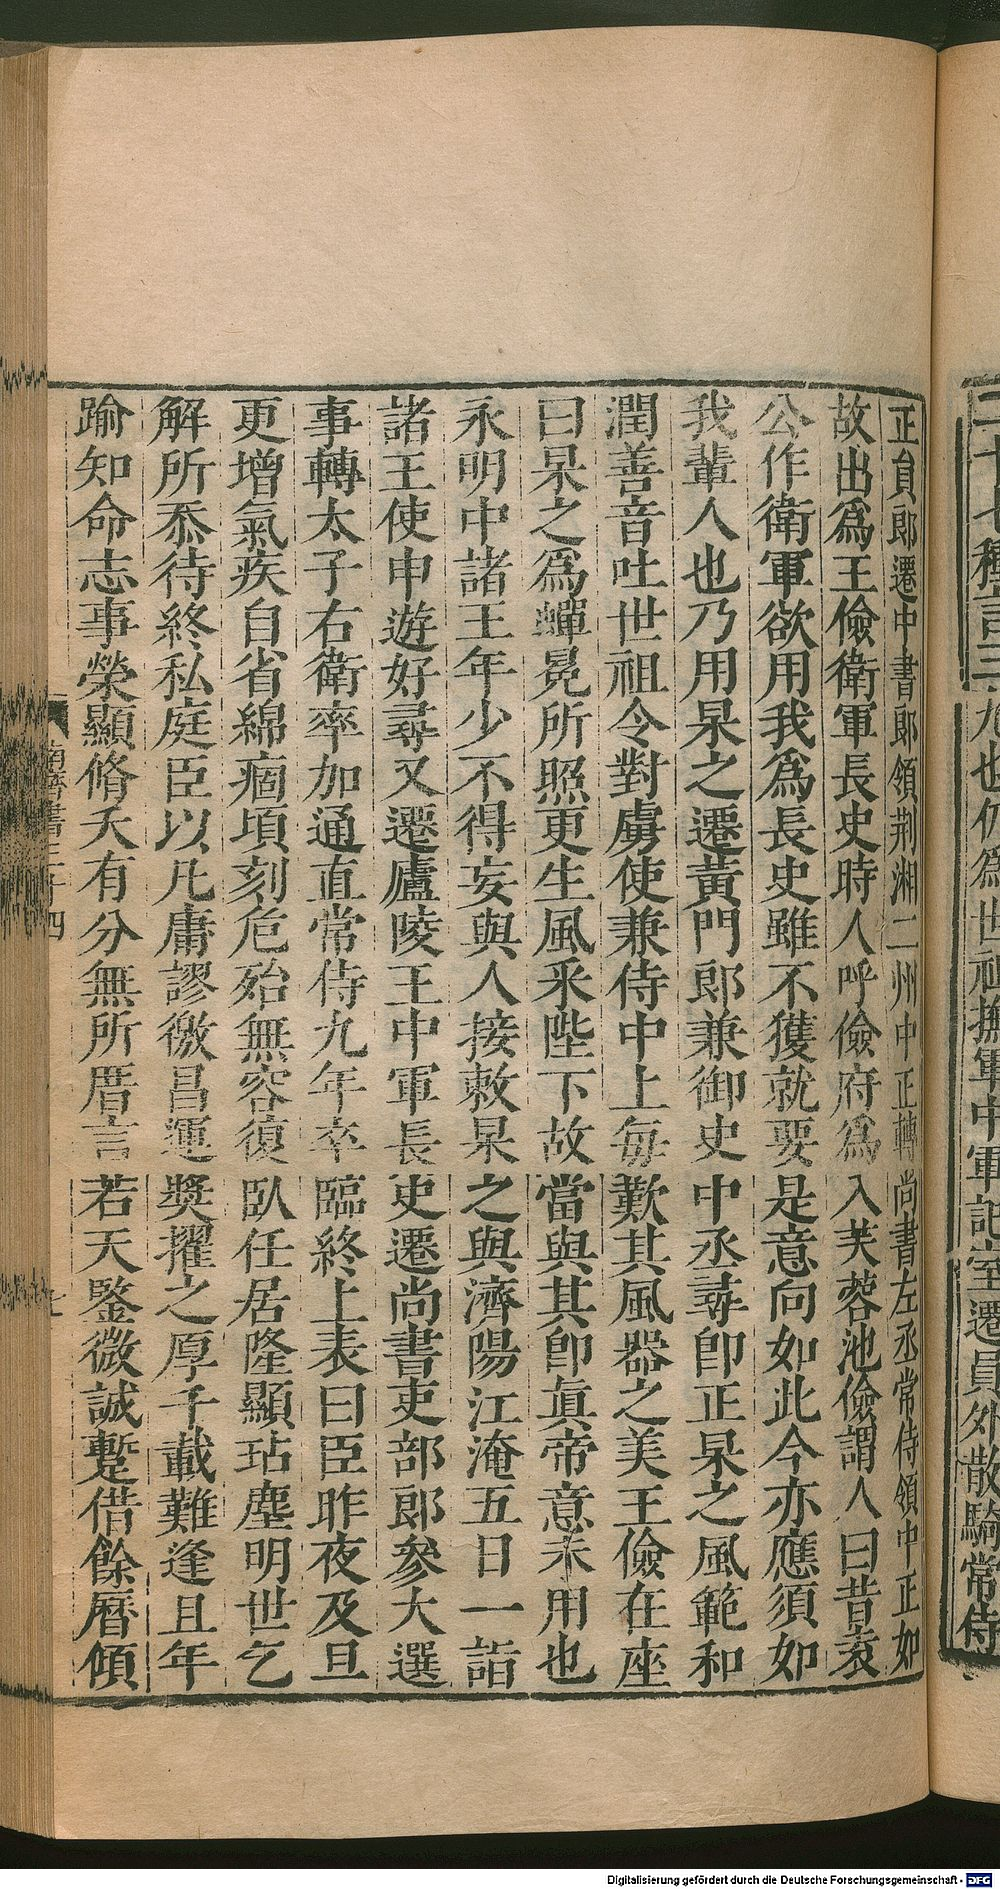 九也仍為世祖撫軍中軍記室遷員外散騎常侍
正員郎遷中書郎領荆湘二州中正轉尚書左丞常侍領中正如
故出爲王儉衛軍長史時人呼儉府爲入芙蓉池儉謂人曰昔袁
公作衛軍欲用我爲長史雖不獲就要是意向如此今亦應須如
我輩人也乃用杲之遷黃門郎兼御史中丞尋卽正杲之風範和
潤善音吐世祖令對虜使兼侍中上每歎其風器之美王儉在座
曰杲之爲蟬冕所照更生風采陛下故當與其卽眞帝意未用也
永明中諸王年少不得妄與人接敕杲之與濟陽江淹五日一詣
諸王使申遊好尋又遷廬陵王中軍長史遷尚書吏部郎參大選
事轉太子右衛率加通直常侍九年卒臨終上表曰臣昨夜及旦
更增氣疾自省綿痼頃刻危殆無容復臥任居隆顯玷塵明世乞
解所忝待終私庭臣以凡庸謬徼昌運奬擢之厚千載難逢且年
踰知命志事榮顯脩夭有分無所厝言若天鑒微誠蹔借餘曆傾
南齊書三十四
七
Digitalisierung gefördert durch die Deutsche Forschungsgemeinschaft - DFG